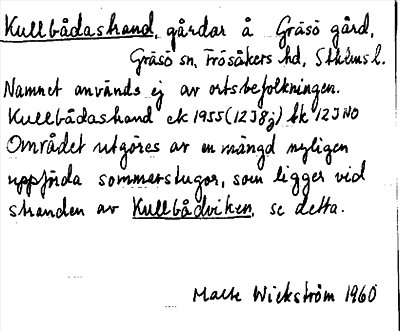 Kullbådastrand, gårdar å Gräsö gård,
Gräsö sn, Frösåkers hd, Sthlms l.
Namnet används ej av ortsbefolkningen.
Kullbådastrand ek 1955 (12J8j) tk 12J NO
Området utgöres av en mängd nyligen
uppförda sommarstugor, som ligger vid
stranden av Kullbådviken, se detta.
Malte Wickström 1960